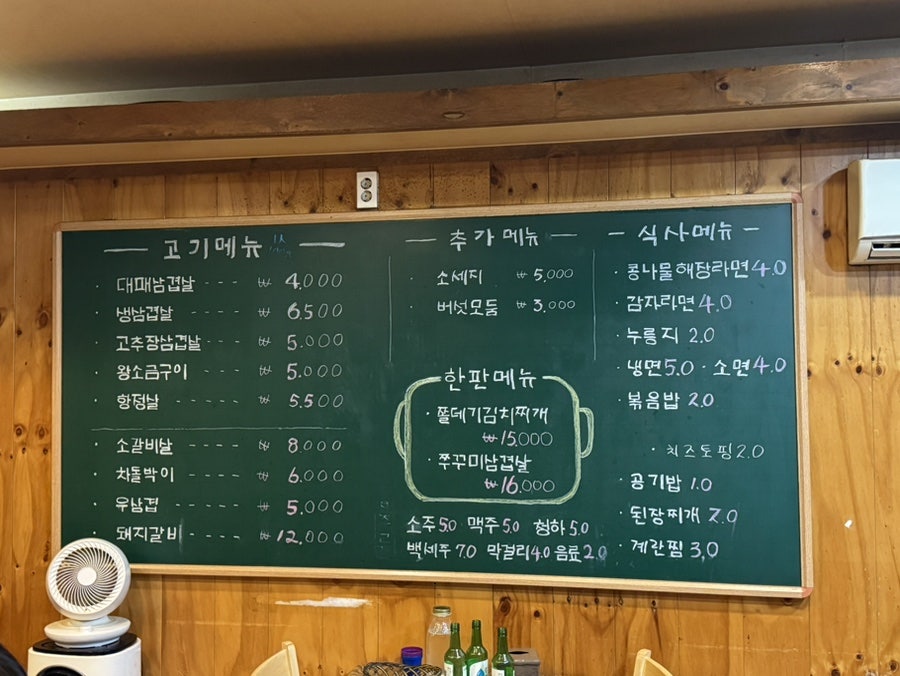 고기메뉴
· 대패삼겹살 - - - - ₩ 4.000
· 냉삼겹살 - - - - ₩ 6.500
· 고추장삼겹살 - - - ₩ 5.000
· 왕소금구이 - - - - ₩ 5.000
· 항정살 - - - - - ₩ 5.500
· 소갈비살 - - - - ₩ 8.000
· 차돌박이 - - - - ₩ 6.000
· 우삼겹 - - - - - ₩ 5.000
· 돼지갈비 - - - - ₩ 12.000
추가메뉴
· 소세지 ₩ 5,000
· 버섯모둠 ₩ 3,000
한판메뉴
· 쫄데기김치찌개
₩15.000
· 쭈꾸미삼겹살
₩16.000
소주5.0 맥주5.0 청하5.0
백세주7.0 막걸리4.0 음료2.0
식사메뉴
· 콩나물해장라면4.0
· 감자라면4.0
· 누룽지 2.0
· 냉면5.0 · 소면4.0
· 볶음밥 2.0
· 치즈토핑2.0
· 공기밥 1.0
· 된장찌개 2.0
· 계란찜 3,0